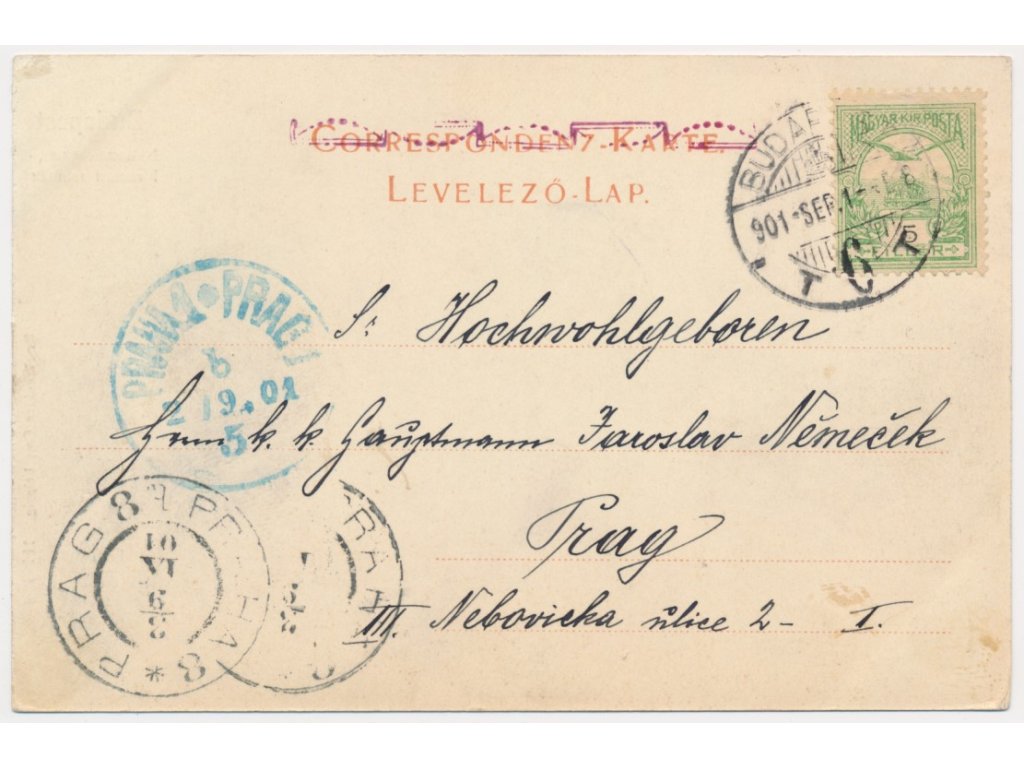 CORRESPONDENZ-KARTE.
LEVELEZŐ-LAP.
MAGYAR·KIR·POSTA
5
901-SEP.1-
6
T T
PRAHA 1 PRAG 1
6
2/9.01
5
Sr Hochwohlgeboren
Herrn k. k. Hauptmann Jaroslav Němeček
Prag
III. Nebovicka ulice 2- I.
PRAG 8 PRAHA 8
2/9
VI
01